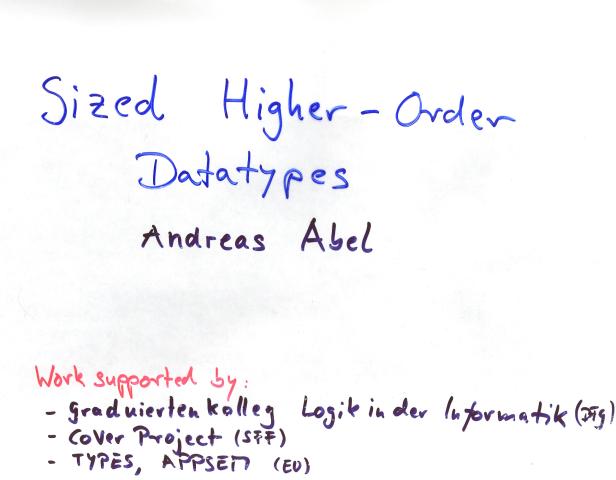 Sized Higher-Order
Datatypes
Andreas Abel
Work supported by:
- Graduiertenkolleg Logik in der Informatik (DFG)
- Cover Project (SFF)
- TYPES, APPSEM (EU)